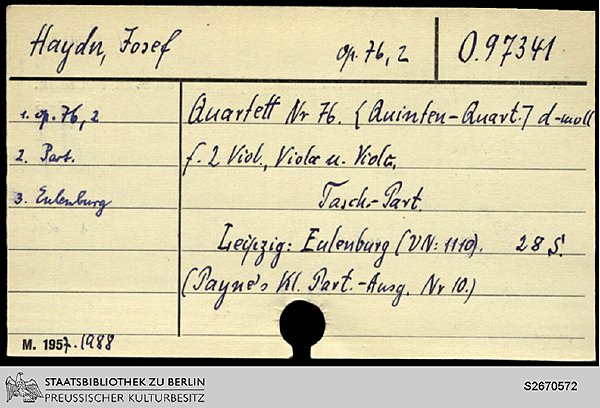 Haydn, Josef
op. 76, 2
O.97341
1. op. 76, 2
Quartett Nr 76. [Quinten-Quart.] d-moll
2. Part.
f. 2 Viol., Viola u. Viola,
3. Eulenburg
Tasch-Part.
Leipzig: Eulenburg (VN: 1110). 28 S.
(Payne's Kl. Part.-Ausg. Nr 10.)
M. 1957.1988
STAATSBIBLIOTHEK ZU BERLIN
PREUSSISCHER KULTURBESITZ
S2670572